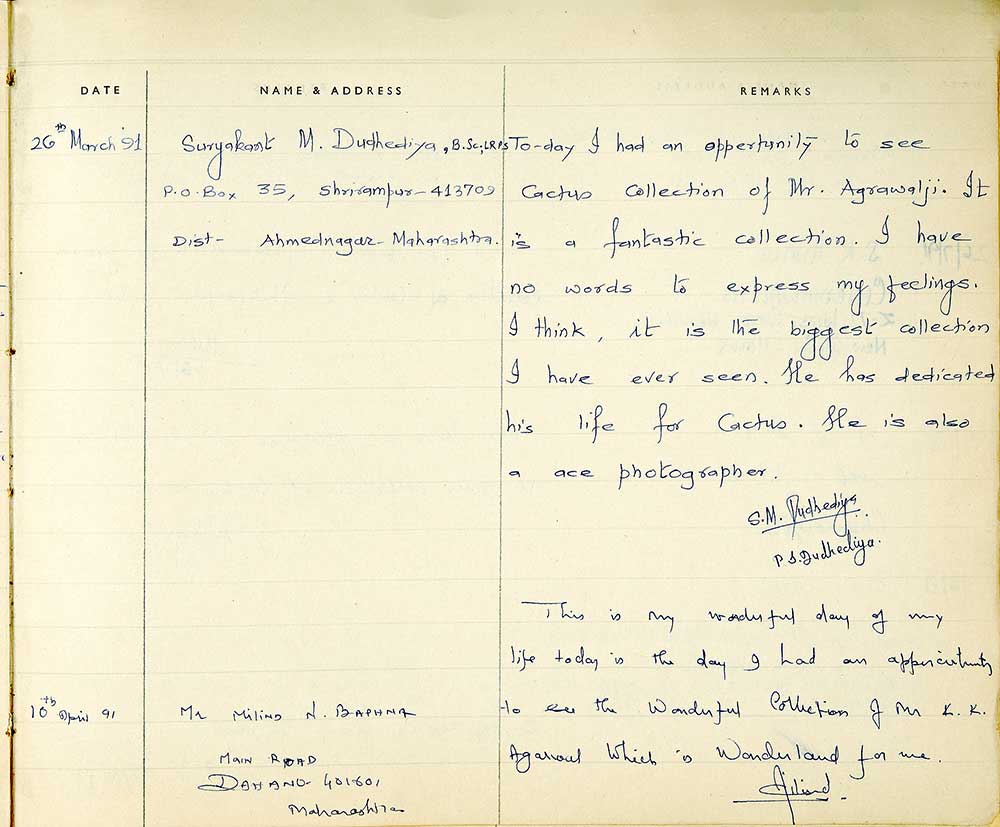 DATE NAME & ADDRESS REMARKS
26th March '91 Suryakant M. Dudhediya, B.Sc, LRPS To-day I had an oppertunity to see
P.O. Box 35, Shrirampur-413709 Cactus Collection of Mr. Agrawalji. It
Dist- Ahmednagar-Maharashtra. is a fantastic collection. I have
no words to express my feelings.
I think, it is the biggest collection
I have ever seen. He has dedicated
his life for Cactus. He is also
a ace photographer.
S.M. Dudhediya
P.S. Dudhediya.
This is my wonderful day of my
life today is the day I had an
10th April 91 Mr Milind N. BAPHNA to see the Wonderful Collection of Mr K. K.
MAIN ROAD Agarwal Which is Wonderland for me.
DAHANU- 401601 Milind.
Maharashtra